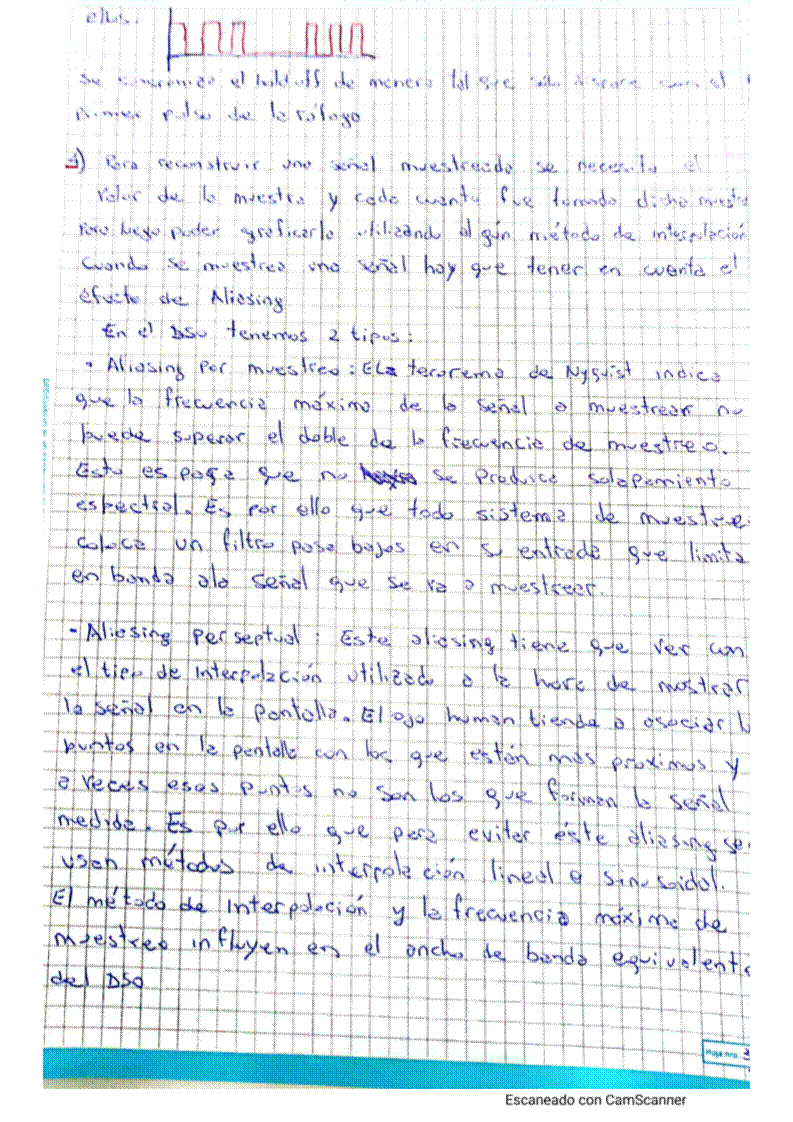 ellos.
Se sincroniza el holdoff de manera tal que solo dispare con el
primer pulso de la ráfaga
4) Para reconstruir una señal muestreada se necesita el
valor de la muestra y cada cuanto fue tomada dicha muestra
Para luego poder graficarla utilizando algún método de interpolación
Cuando se muestrea una señal hay que tener en cuenta el
efecto de Aliasing
En el DSO tenemos 2 tipos:
• Aliasing por muestreo: El teorema de Nyquist indica
que la frecuencia máxima de la señal a muestrear no
puede superar el doble de la frecuencia de muestreo.
Esto es para que no se produzca solapamiento
espectral. Es por ello que todo sistema de muestreo
coloca un filtro pasa bajos en su entrada que limita
en banda a la señal que se va a muestrear.
- Aliasing perseptual: Este aliasing tiene que ver con
el tipo de interpolación utilizado a la hora de mostrar
la señal en la pantalla. El ojo human tiende a asociar
puntos en la pantalla con los que están más proximos y
a veces esos puntos no son los que forman la señal
medida. Es por ello que para evitar éste aliasing se
usan métodos de interpolación lineal o sinusoidal.
El método de Interpolación y la frecuencia máxima de
muestreo influyen en el ancho de banda equivalente
del DSO
Hoja nro. 3
Escaneado con CamScanner